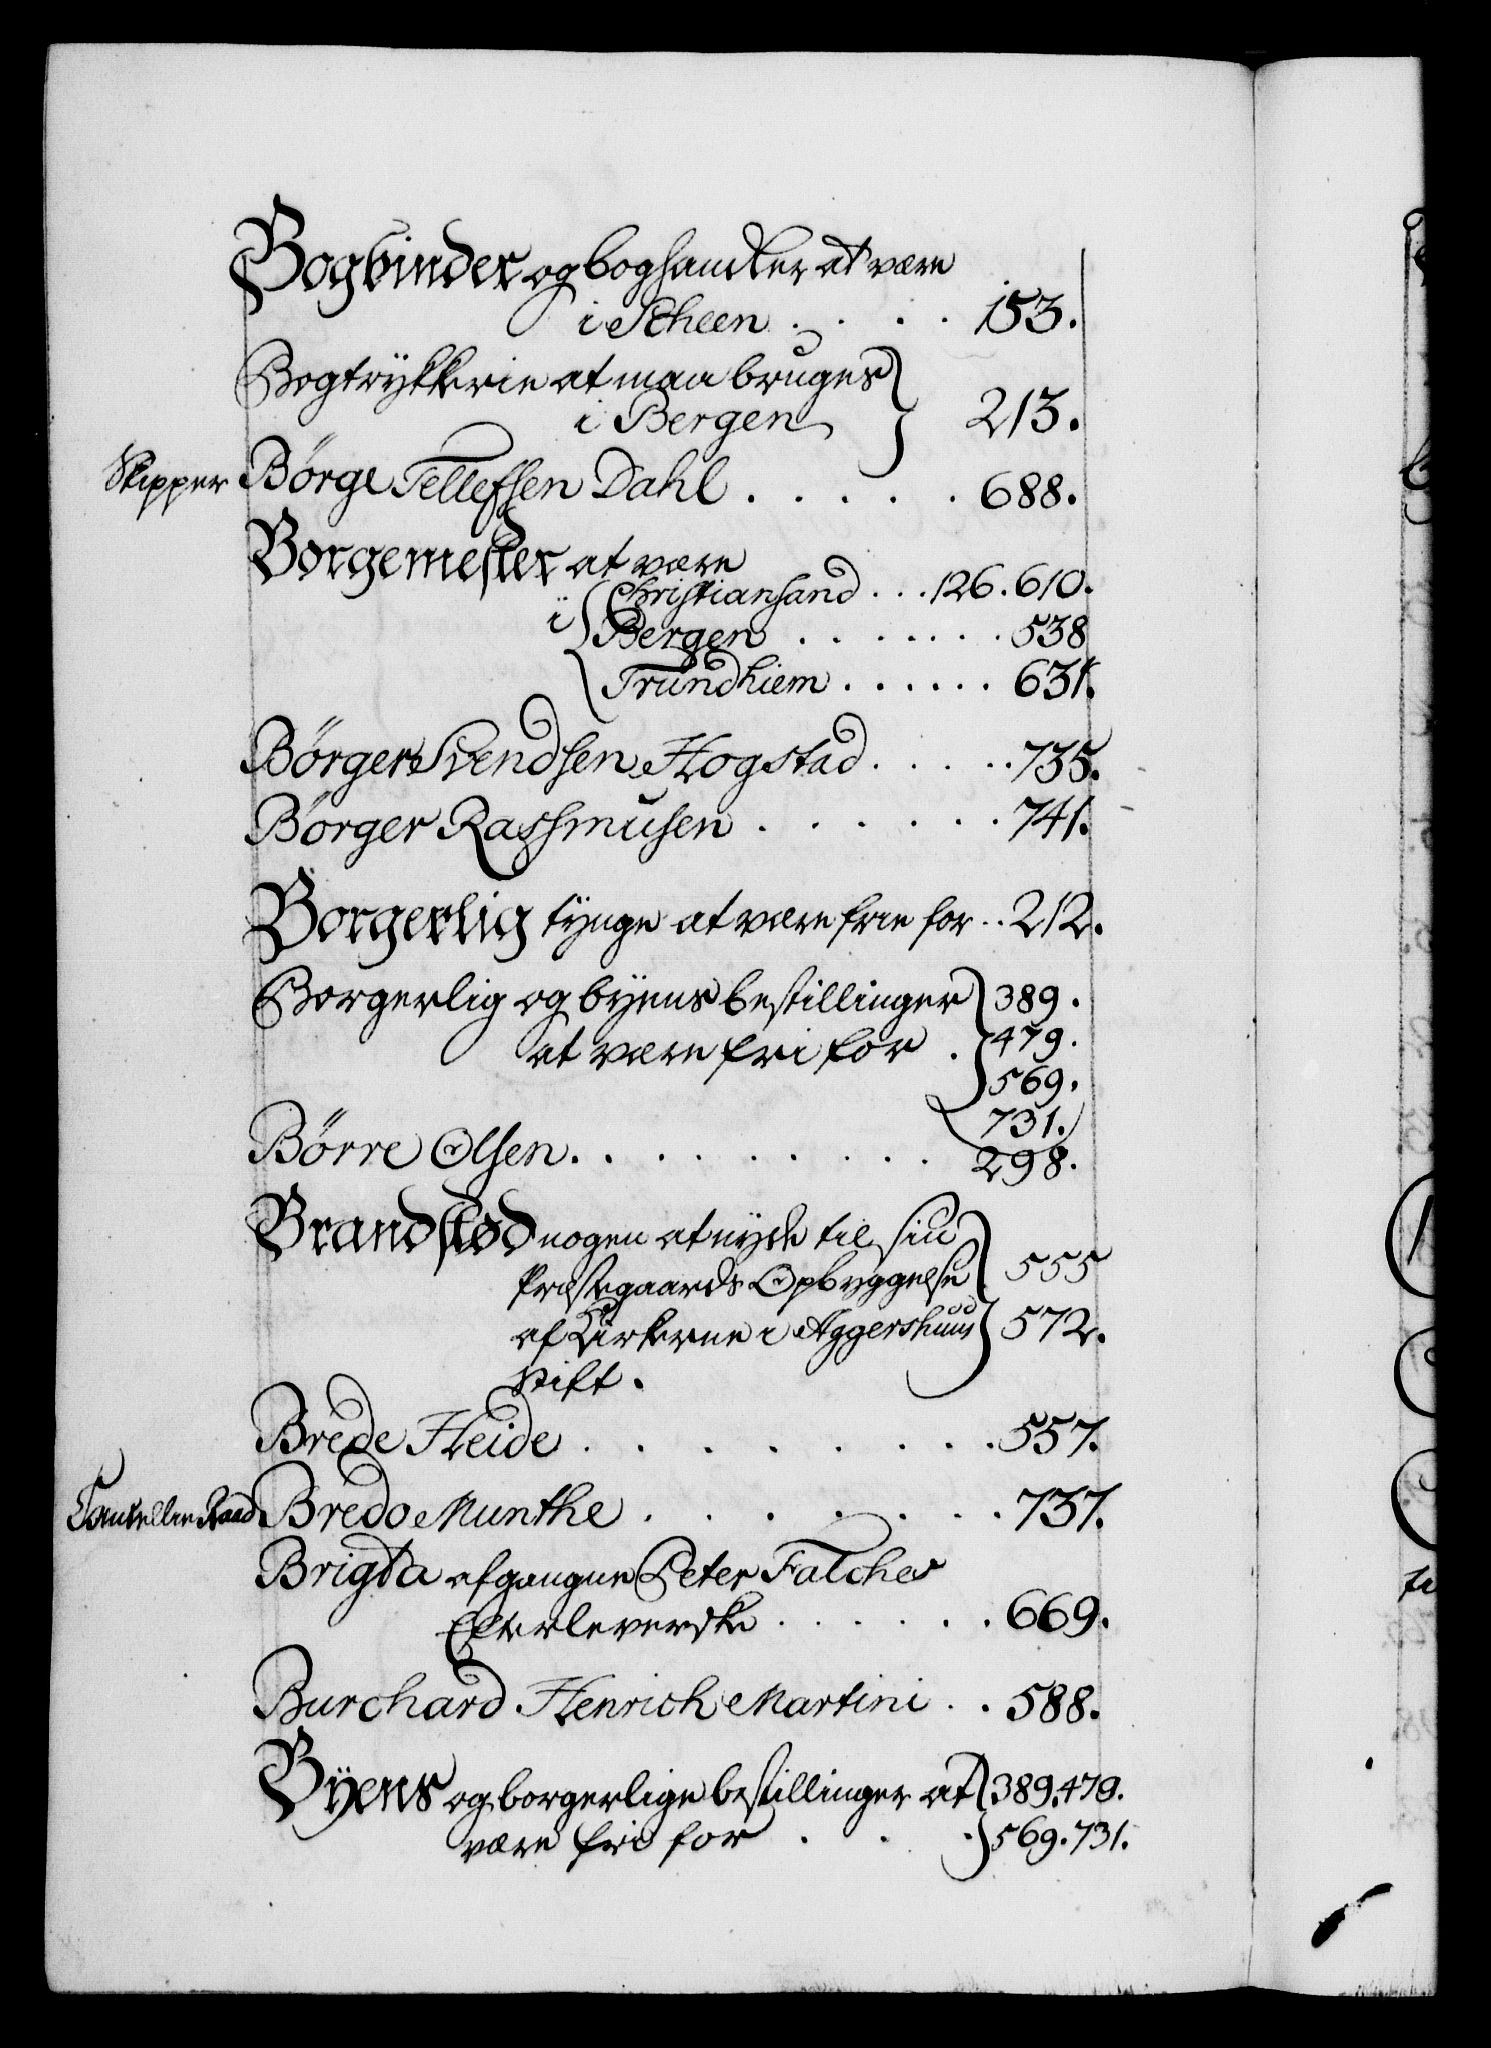 Bogbinder og boghandler at være
i Scheen . . . . 153.
Bogtrykkerie at maa bruges
i Bergen } 213.
Skipper Börge Tellefsen Dahl . . . . . 688.
Borgemester at være
i { Christiansand . . . 126. 610.
Bergen . . . . . . . 538
Trundhiem . . . . . . 631.
Börger Svendsen Hogstad . . . . . 735.
Börger Rassmusen . . . . . . 741.
Borgerlig tynge at være frie for . . 212.
Borgerlig og byens bestillinger } 389.
at være fri for . } 479.
569.
731.
Börre Olsen . . . . . . . . . 298.
Brandstød nogen at nyde til sin
Præstegaards Opbyggelse } 555
af Kirkerne i Aggershuus } 572.
Stift.
Brede Heide . . . . . . . . 557.
Cancellie Raad Bredo Munthe . . . . . . . 737.
Brigta afgangne Peter Falches
Efterleverske . . . . . . 669.
Burchard Henrich Martini . . 588.
Byens og borgerlige bestillinger at } 389. 479.
være fri for . . . } 569. 731.